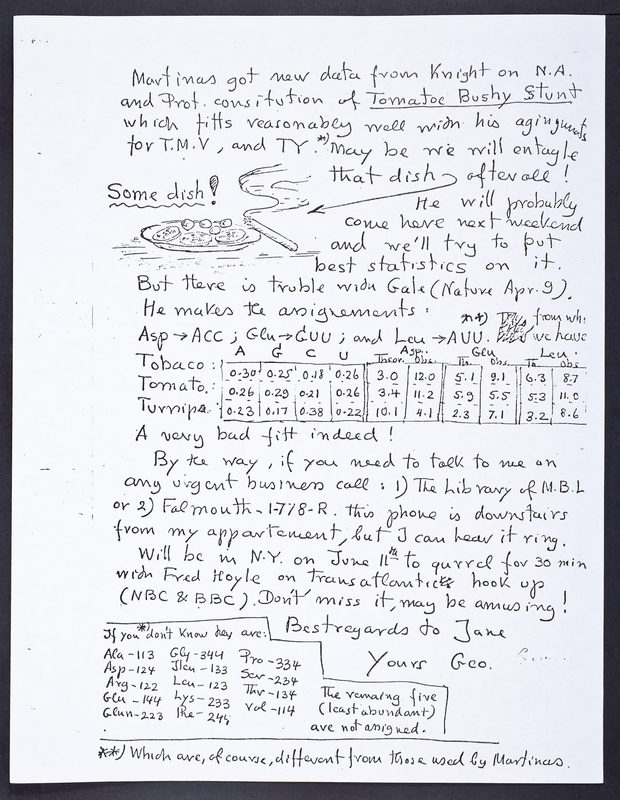 Martinas got new data from Knight on N.A.
and Prot. consitution of Tomatoe Bushy Stunt
which fitts reasonably well with his
for T.M.V, and TY.**) May be we will entagle
that dish afterall!
Some dish!
He will probably
come here next weekend
and we'll try to put
best statistics on it.
But there is truble with Gale (Nature Apr. 9).
He makes the assignements:
**) from wh.
Asp → ACC; Glu → GUU; and Leu → AUU. we have
A G C U Asp. Glu. Leu.
Theor. Obs. Th. Obs. Th. Obs
Tobaco: 0.30 0.25 0.18 0.26 3.0 12.0 5.1 9.1 6.3 8.7
Tomato: 0.26 0.29 0.21 0.26 3.4 11.2 5.9 5.5 5.3 11.0
Turnip: 0.23 0.17 0.38 0.22 10.1 4.1 2.3 7.1 3.2 8.6
A very bad fitt indeed!
By the way, if you need to talk to me on
any urgent business call: 1) The Library of M.B.L
or 2) Falmouth-1-778-R. this phone is downstairs
from my appartement, but I can hear it ring.
Will be in N.Y. on June 11th to qurrel for 30 min
with Fred Hoyle on transatlantic hook up
(NBC & BBC). Don't miss it, may be amusing!
Best regards to Jane
Yours Geo.
If you *) don't know hey are:
Ala - 113 Gly - 344 Pro - 334
Asp - 124 Ileu - 133 Ser - 234
Arg - 122 Leu - 123 Thr - 134
Glu - 144 Lys - 233 Val - 114
Glun - 223 Phe - 244
The remaing five
(least abundant)
are not assigned.
**) Which are, of course, different from those used by Martinas.